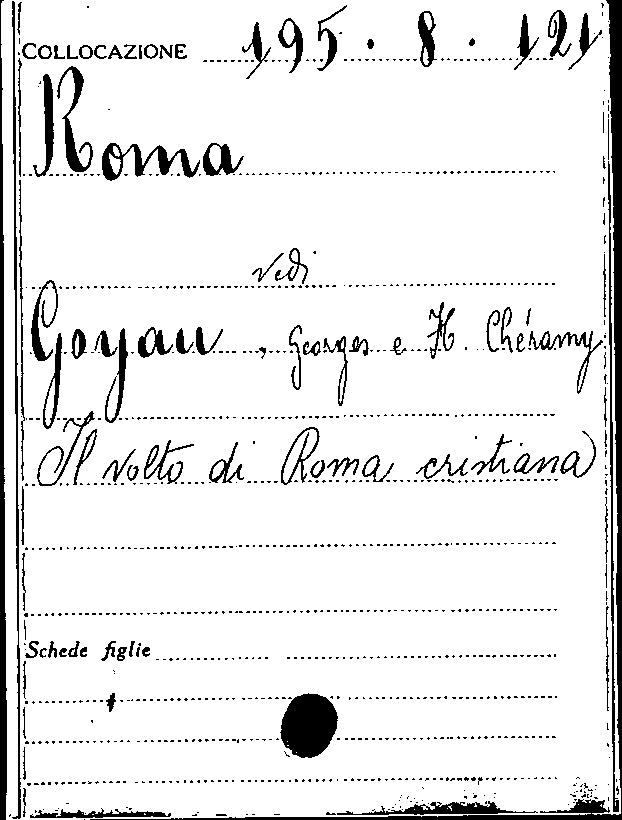 COLLOCAZIONE 195.8.121
Roma
vedi
Goyau, Georges e H. Chéramy
Il volto di Roma cristiana
Schede figlie